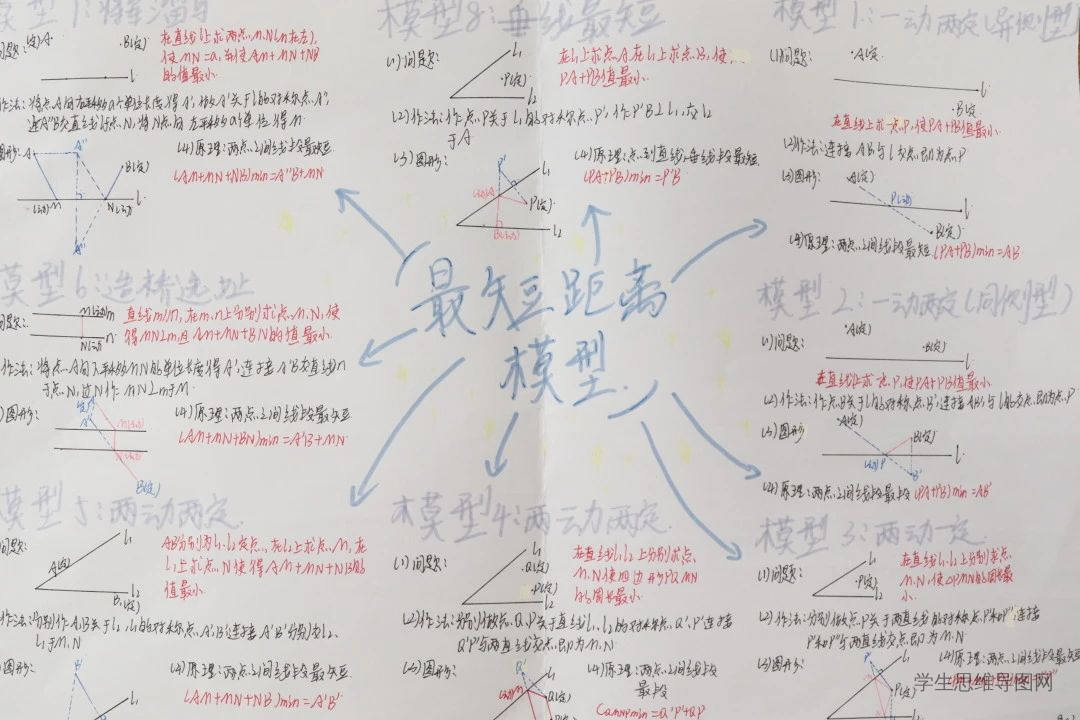 最短距离
模型
模型1:一动两定(异侧型)
(1)问题:
·A(定)
l
·B(定)
在直线l上求一点P,使PA+PB值最小
(2)作法:连接AB与l交点即为点P
(3)图形:
A(定)
P(动)
l
B(定)
(4)原理:两点之间线段最短 (PA+PB)min=AB
模型2:一动两定(同侧型)
(1)问题:
·A(定)
·B(定)
l
在直线l上求一点P,使PA+PB值最小
(2)作法:作点B关于l的对称点B',连接AB',与l的交点即为点P
(3)图形
A(定)
B(定)
(动)P
l
B'
(4)原理:两点之间线段最段 (PA+PB)min=AB'
模型3:两动一定
(1)问题:
l₁
·P(定)
l₂
在直线l₁l₂上分别求点
M、N,使△PMN的周长最
小
(2)作法:分别做点P关于两直线的对称点P'和P",连接
P'和P"与两直线交点即为M、N
(3)图形:
P'
l₁
P(定)
(4)原理:两点之间线段最短
模型4:两动两定
(1)问题:
l₁
Q(定)
·P(定)
l₂
在直线l₁l₂上分别求点
M、N使四边形PQMN
的周长最小
(2)作法:分别做点Q、P关于直线l₁、l₂的对称点Q'、P'连接
Q'P'与两直线交点即为M、N
(3)图形:
Q'
l₁
Q(定)
P(定)
(4)原理:两点之间线段
最段
模型5:两动两定
问题:
l₁
A(定)
B(定)
l₂
AB分别为l₁l₂定点,在l₂上求点M,在
l₁上求点N使得AM+MN+NB的
值最小
作法:分别作A、B关于l₂、l₁的对称点A',B'连接A'B'分别交l₂、
l₁于M、N
图形:
B'
l₁
(4)原理:两点之间线段最短
(AM+MN+NB)min=A'B'
模型6:造桥选址
问题:
M(动)m
N(动)n
直线m//n,在m、n上分别求点M、N,使
得MN⊥m,且AM+MN+BN的值最小
作法:将点A向下平移MN的单位长度得A',连接A'B交直线n
于点N,过N作MN⊥m于M
图形:
A'
M(动)
N(动)
B(定)
(4)原理:两点之间线段最短
(AM+MN+BN)min=A'B+MN
问题:
A·
·B(定)
l
在直线l上求两点M、N(M在左),
使MN=a,并使AM+MN+NB
的值最小
作法:将点A向右平移a个单位长度得A',做A'关于l的对称点A",
连A"B交直线l于点N,将N点向左平移a个单位得M
图形:
A
A'
B(定)
M
N(动)
l
A"
(4)原理:两点之间线段最短
(AM+MN+NB)min=A"B+MN
模型8:垂线最短
(1)问题:
l₁
·P(定)
l₂
在l₁上求点A,在l₂上求点B,使
PA+PB值最小
(2)作法:作点P关于l₁的对称点P',作P'B⊥l₂,交l₂
于A
(3)图形:
P'
l₁
(动)A
P(定)
B(动)
l₂
(4)原理:点到直线,垂线段最短
(PA+PB)min=P'B
学生思维导图网